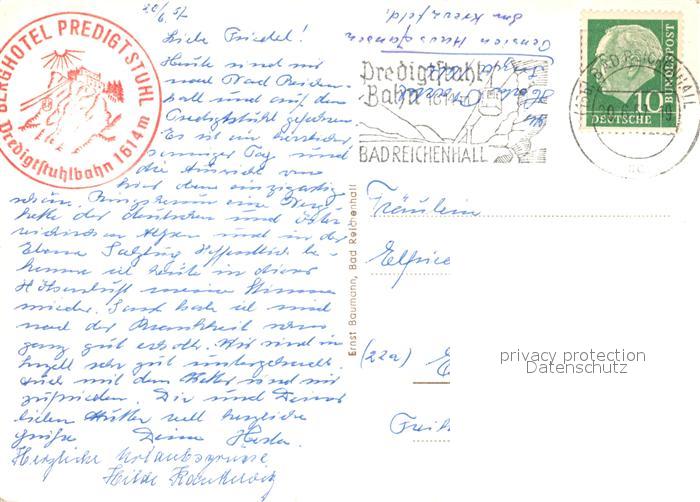 BERGHOTEL PREDIGTSTUHL
Predigtstuhlbahn 1614 m
Liebe Friedel!
Heute sind wir
nach Bad Reichen-
hall und auf den
Predigtstuhl gefahren
Es ist ein herrlicher
sonniger Tag und
die Aussicht von
hier oben einzigartig
schön. Ringsherum eine Berg-
kette der deutschen und öster-
reichischen Alpen und in der
Ebene Salzburg. Hoffentlich be-
komme ich heute in dieser
Höhenluft meine Stimme
wieder. Sonst habe ich mich
nach der Krankheit schon
ganz gut erholt. Wir sind in
sehr gut untergebracht.
Auch mit dem Wetter sind wir
zufrieden. Dir und Deiner
lieben Mutter recht herzliche
Grüße Deine
Herzliche Urlaubsgrüsse
Hilde
Pension Haus
am Kreuzfeld.
Predigtstuhl
Bahn 1614 m
BAD REICHENHALL
BAD REICHENHALL
10
DEUTSCHE
BUNDESPOST
Ernst Baumann, Bad Reichenhall
Fräulein
Elfriede
(22a) E
privacy protection
Datenschutz